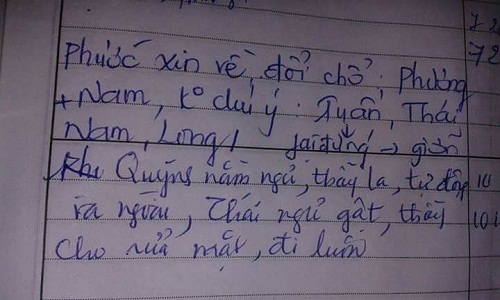 72
72
Phước xin về, đổi chỗ, Phương
+ Nam, to chú ý: Tuấn, Thái
Nam, Long, giỡn
khi Quỳnh nằm ngủ, thầy la, tự đập 10
ra người, Thái ngủ gật, thầy 10
cho rửa mặt, đi luôn